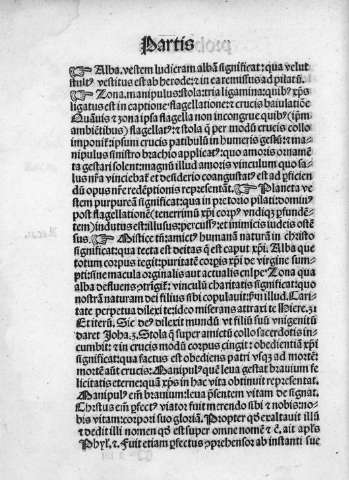 Partis
☞ Alba. vestem ludicram albã significat: qua velut
stult⁹ vestitus est ab herode: ⁊ in ea remissus ad pilatũ.
☞ Zona. manipulus: stola: tria ligamina: quib⁹ xp̃s
ligatus est in captione: flagellatione: ⁊ crucis baiulatiõe
Quãuis ⁊ zona ipsa flagella non incongrue quib⁹ (ip̃m
ambiẽtibus) flagellat⁹: ⁊ stola q̃ per modũ crucis collo
imponiť: ipsum crucis patibulũ in humeris gestũ: ⁊ ma
nipulus sinistro brachio applicat⁹: quo amoris ornamẽ
ta gestari solent: magnũ illud amoris vinculum quo sa⸗
lus nr̃a vincebať ⁊ et desiderio coangustat⁹ est ad p̱ficien
dũ opus nr̃e redẽptionis representat. ☞ Planeta ve
stem purpureã significat: qua in pretorio pilati: domin⁹
post flagellationẽ (tenerrimũ xp̃i corp⁹ vndiqꝫ p̱fundẽ⸗
tem) indutus est: illusus: percuss⁹: et inimicis iudeis ostẽ
sus. ☞ Mistice tñ: amict⁹ humanã naturã in christo
significat: qua tecta est deitas q̃ est caput xp̃i: Alba que
totum corpus tegit: puritatẽ corpis xp̃i de virgine sum⸗
pti: sine macula originalis aut actualis culpe: Zona qua
alba defluens astrĩgiť: vinculũ charitatis significat: quo
nostrã naturam dei filius sibi copulauit: ip̃m illud. Cari
tate perpetua dilexi te: ideo miserans attraxi te Hiere. 31
Et iterũ. Sic de⁹ dilexit mundũ vt filiũ suũ vnigenitũ
daret Joha. 3. Stola q̃ super amictũ collo sacerdotis in
cumbit: ⁊ in crucis modũ corpus cingit: obedientiã xp̃i
significat: qua factus est obediens patri vsqꝫ ad mortẽ:
mortẽ aũt crucis: Manipul⁹ quẽ leua gestat brauium fe
licitatis eterne: quã xp̃s in hac vita obtinuit representat.
Manipul⁹ em̃ brauium: leua p̃sentem vitam de signat.
Christus em̃ p̱fect⁹ viator fuit merendo sibi ⁊ nobis: no⸗
bis vitam: corpori suo gloriã. Propter qd̃ exaltauit illũ
⁊ dedit illi nomen qd̃ est super omne nomẽ ⁊ c̃. ait apl̃s
Phyl̃. 2. Fuit etiam p̱fectus cõprehensor ab instanti sue